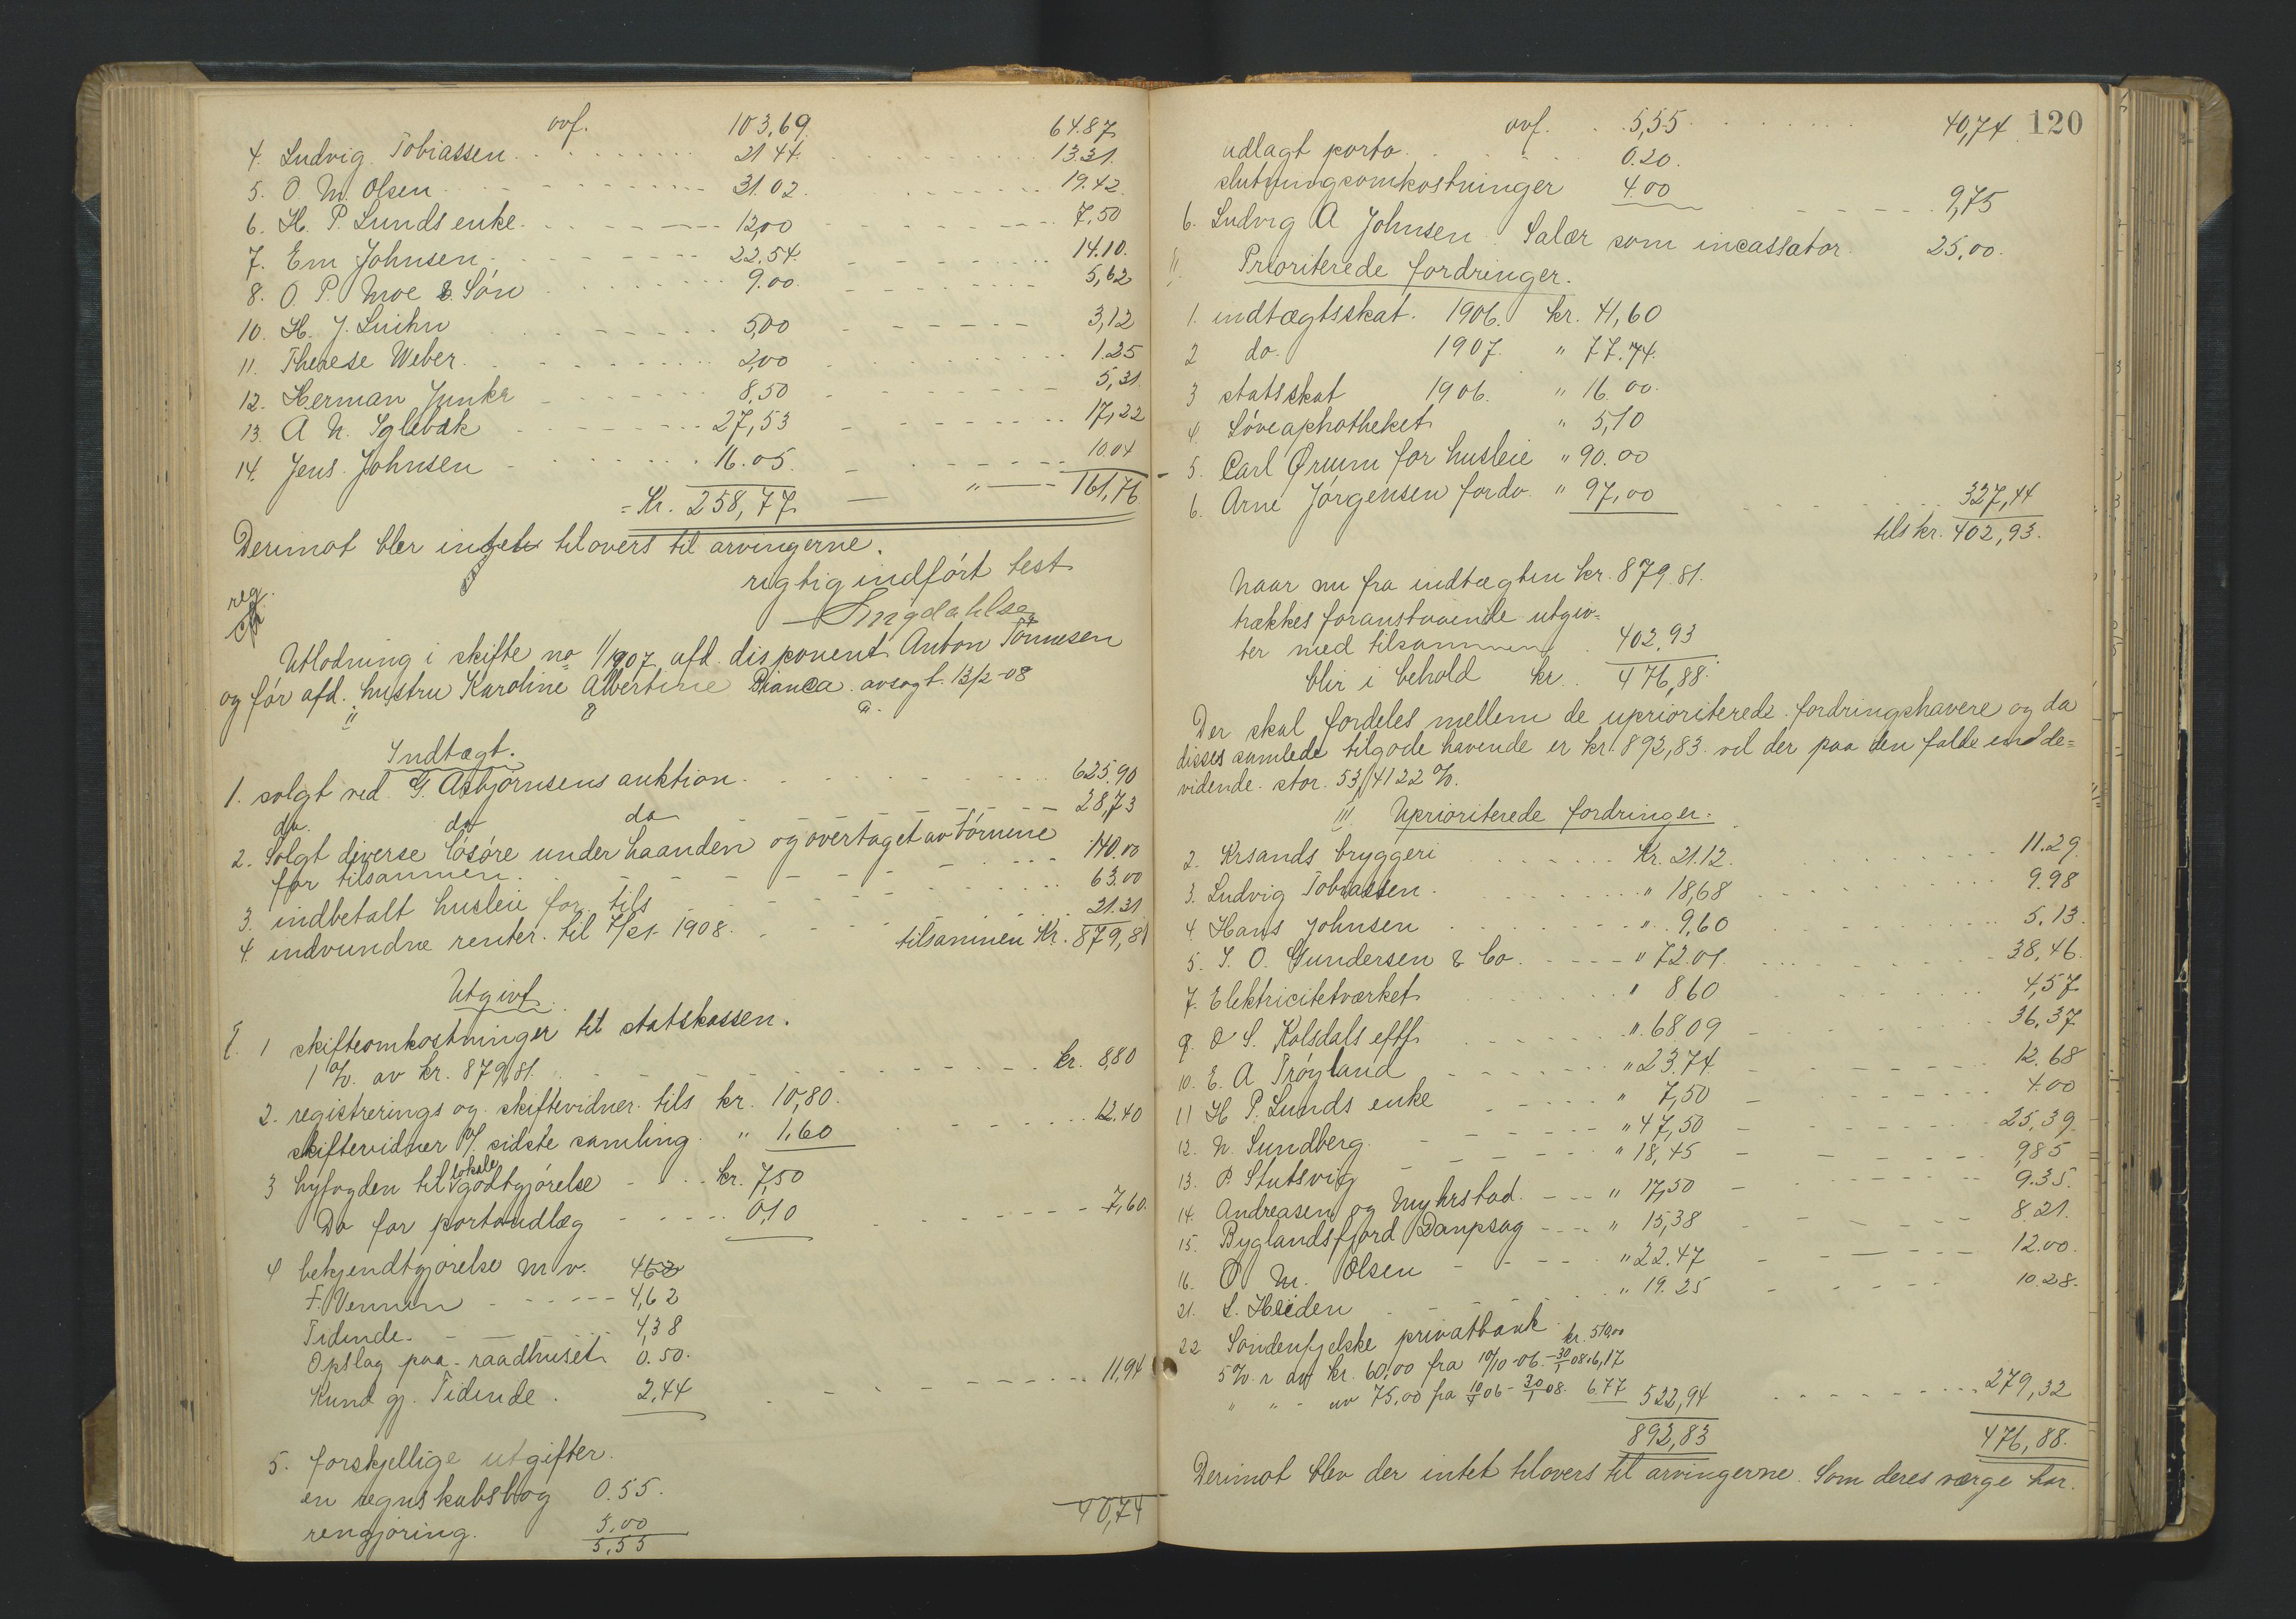 ovf. 103,69 64.87
4. Ludvig Tobiassen 21 44 13.31.
5. O. M. Olsen 31.02. 19.42.
6. H. P. Lunds enke 12,00 7.50
7. Em Johnsen 22.54. 14.10.
8. O. P. Moe & Sön 9.00. 5,62
10. H. J. 5,00 3,12
11. Therese Weber. 2,00 1.25
12. Herman Junkr 8,50 5,31.
13. A N. Iglebæk 27,53 17,22
14. Jens Johnsen 16.05. 10.04
= Kr. 258,77. — " — 161,76
Derimot blev intet tilovers til arvingerne.
rigtig indfört test
reg.
Utlodning i skifte no 1/1907 afd. disponent Anton Tönnesen
og för afd. hustru Karoline Albertine Bianca. avsagt. 13/2-08
Indtægt.
1. solgt ved G. Asbjörnsens auktion. 625.90
do. do do 28,73
2. Solgt diverse lösöre under haanden og overtaget av börnene
for tilsammen. 140.00
3. indbetalt husleie for tils 63.00
4. indvundne renter. til 1908. 21.31
tilsammen Kr. 879,81
Utgivt.
I. 1 skifteomkostninger til statskassen.
1 % av kr. 879,81. kr. 8,80
2. registrerings og skiftevidner tils kr. 10,80.
skiftevidner v/ sidste samling. " 1,60 12.40
3 byfogden til lokale godtgjörelse kr. 7,50
Do for portoudlæg 0,10 7,60.
4 bekjendtgjörelse m v. 4 62
F. Vennen 4,62
Tidende. 4,38
Opslag paa raadhuset 0.50.
Kund gj. Tidende. 2,44 11,94
5. forskjellige utgifter.
en regnskabsbog 0.55.
rengjöring. 5.00
5.55 40,74
120
ovf. 5,55 40,74
udlagt porto 0.20.
slutningsomkostninger 4.00 9,75
6. Ludvig A Johnsen Salær som incassator. 25,00.
II. Prioriterede fordringer.
1. indtægtsskat. 1906. kr. 41,60
2 do. 1907. " 77.74.
3 statsskat 1906. " 16.00.
4. Löveaphotheket " 5,10
5. Carl Ørum for husleie " 90.00
6. Arne Jörgensen fordr. " 97,00 327,44
tils kr. 402,93.
Naar nu fra indtægten kr. 879.81.
trækkes foranstaaende utgiv=
ter med tilsammen 402,93
blir i behold kr. 476,88.
Der skal fordeles mellem de uprioriterede fordringshavere og da
disses samlede tilgode havende er kr. 892,83 vil der paa den falde en de=
vidende stor. 53,4122 %.
III. Uprioriterede fordringer.
2. Krsands bryggeri Kr. 21.12. 11.29.
3. Ludvig Tobiassen. " 18,68 9.98
4. Hans Johnsen " 9,60 5.13.
5. I. O. Gundersen & Co. " 72.01. 38,46.
7. Elektricitetværket " 8.60 4,57
9. O S. Kalsdals eftf. " 68 09 36,37
10. E. A Tröyland " 23.74 12.68
11 H P. Lunds enke " 7,50 4.00
12. N. Sundberg. " 47,50 25,39.
13. P. Stutsvig " 18,45 9,85
14. Andreasen og Myhrstad. " 17,50 9.35.
15. Byglandsfjord Dampsag " 15,38 8.21.
16. O M. Olsen " 22.47 12.00.
21. S. Heiden " 19.25 10.28.
22 Söndenfjelske privatbank. kr. 510,00
5 % r. av kr. 60,00 fra 10/10-06 - 30/1 08. 6,17
" " - av 75,00 fra 10/4 06 - 30/1 08. 6.77 522,94 279,32
892,83 476,88.
Derimot blev der intet tilovers til arvingerne. Som deres værge har.